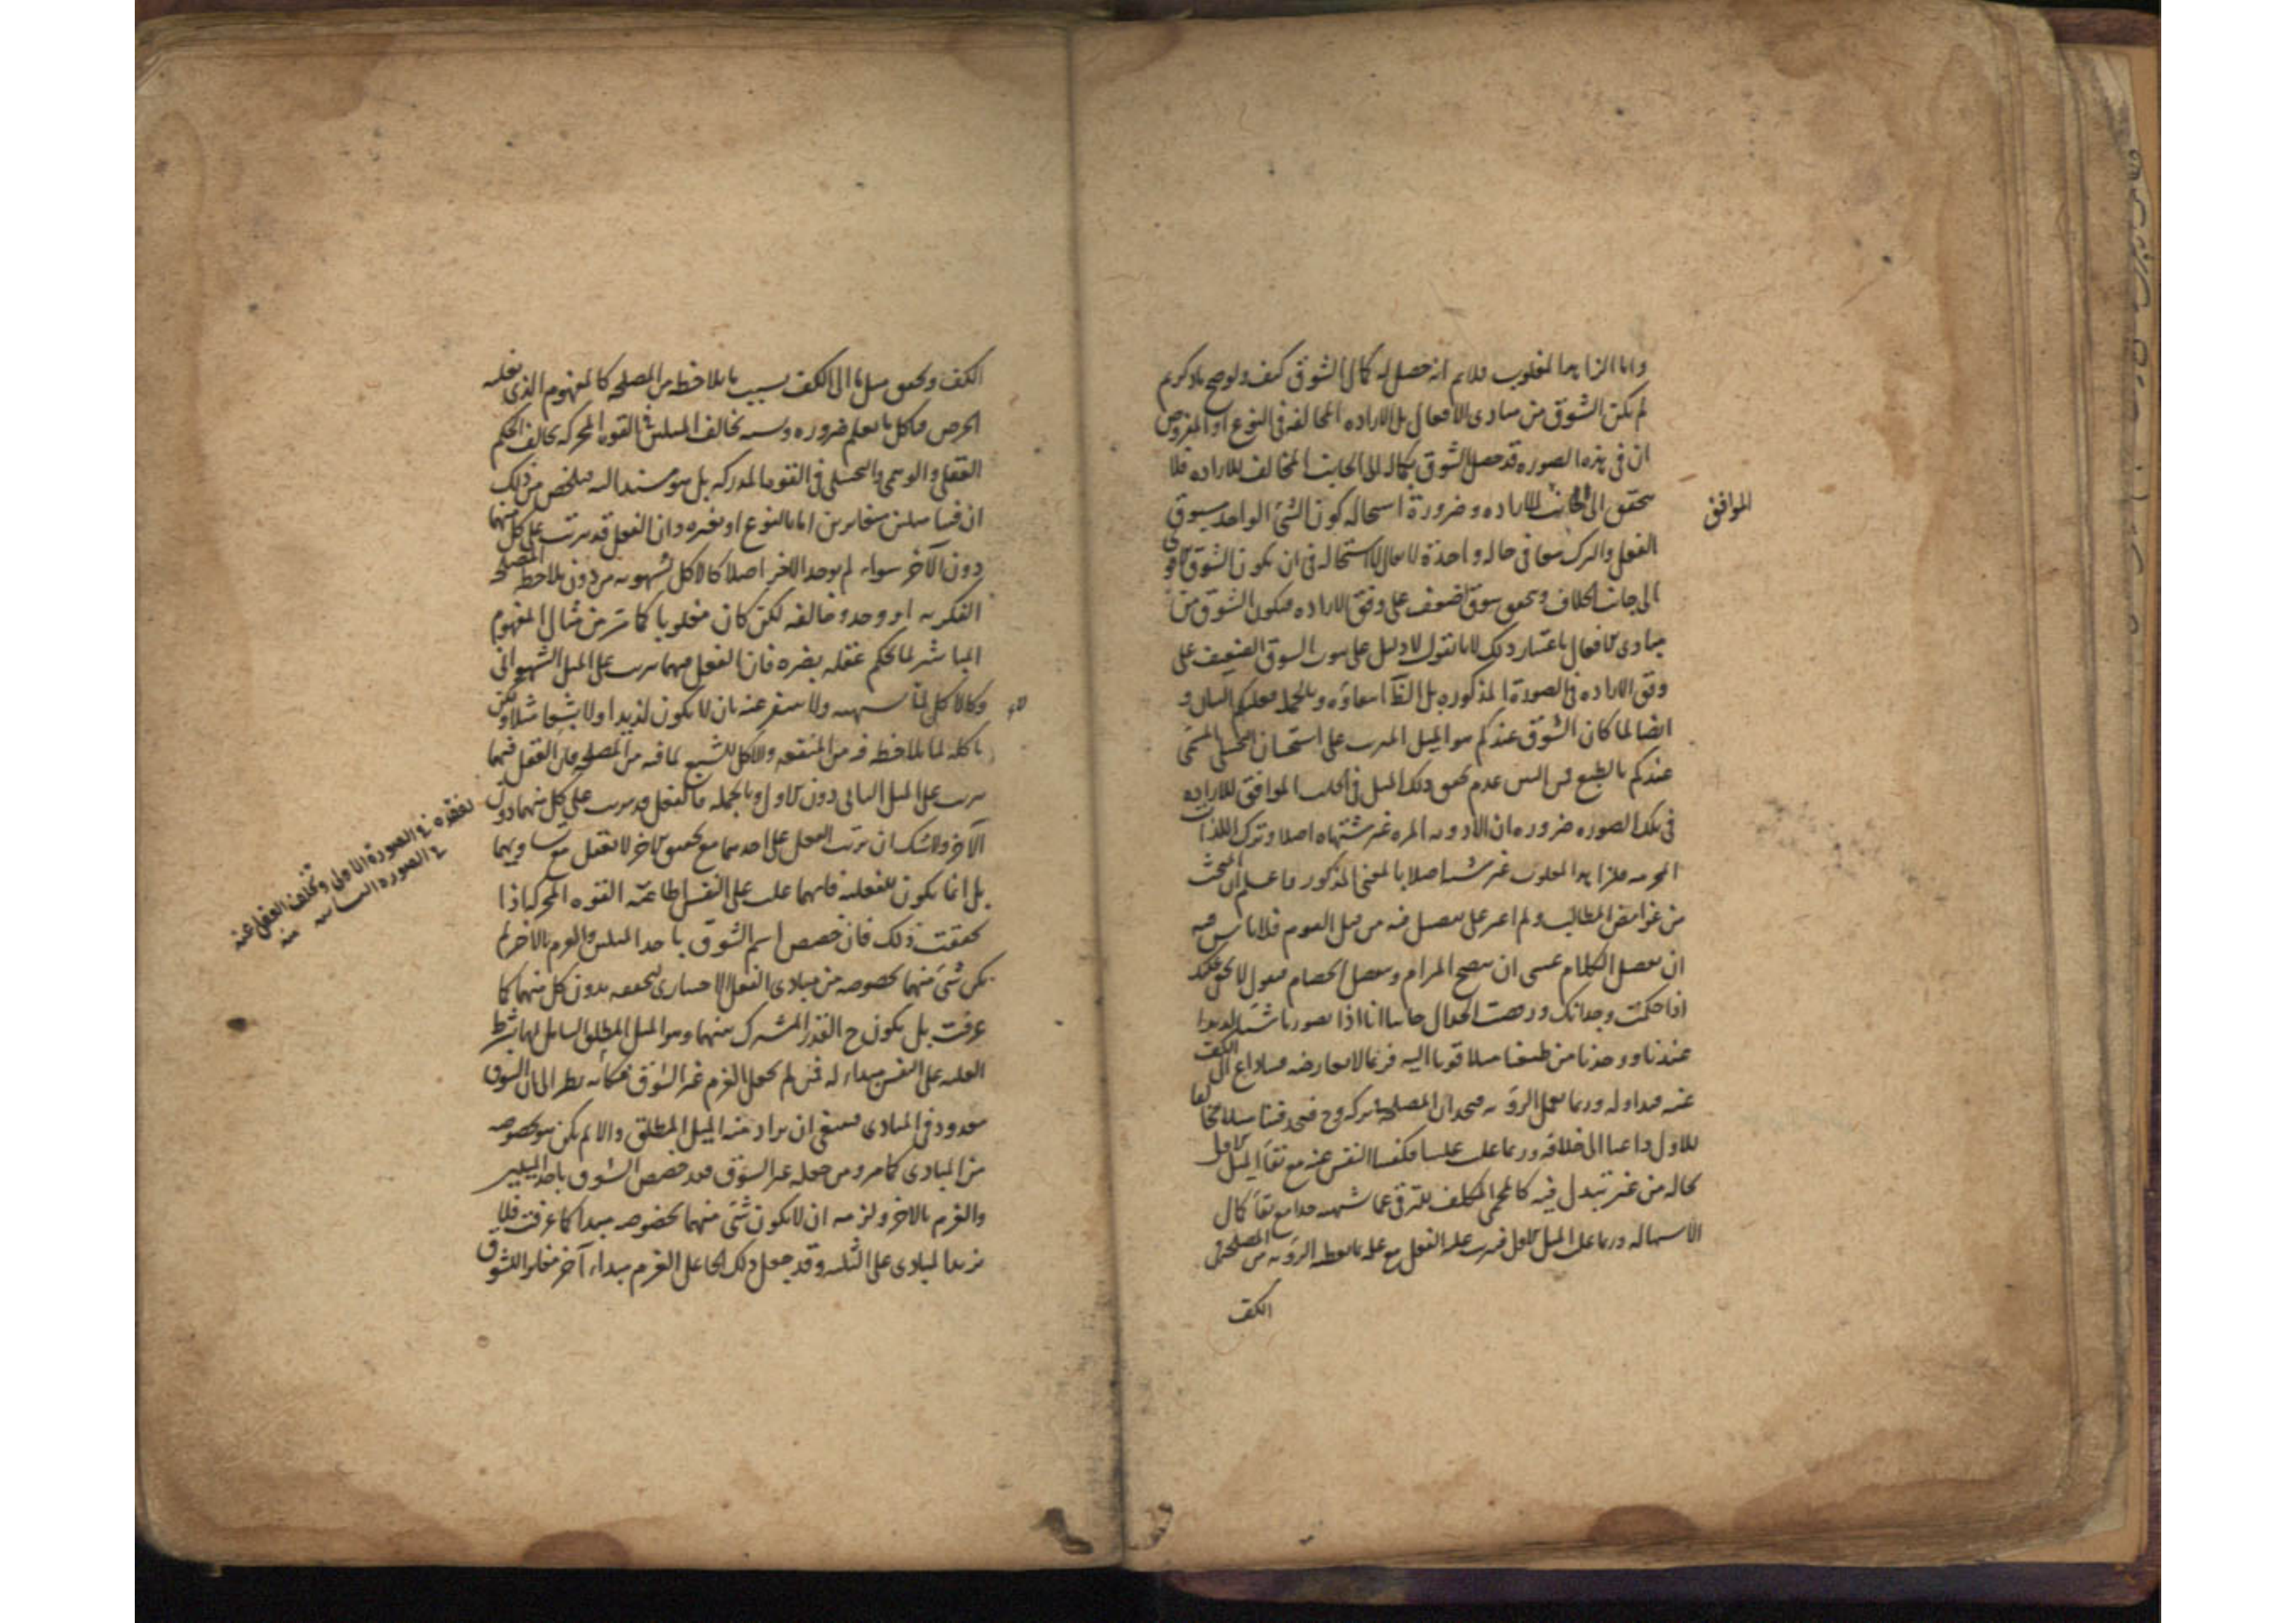 واما الزاهد المغلوب فلانم انه حصل له كمال الشوق كيف ولو صح ما ذكرتم
لم يكن الشوق من مبادى الافعال بل الاراده المخالفه فى النوع اذ المفروض
ان فى هذه الصوره قد حصل الشوق بكماله الى الجانب المخالف للاراده فلا
يتحقق الى الجانب للاراده وضرورة استحاله كون الشئ الواحد يشوق
الموافق
الفعل والترك معا فى حاله واحدة لا يقال لا استحاله فى ان يكون الشوق القوى
الى جانب الخلاف ويتحقق شوق اضعف على وفق الاراده فيكون الشوق من
مبادى الافعال باعتبار ذلك لانا نقول لا دليل على ثبوت الشوق الضعيف على
وفق الاراده فى الصورة المذكوره بل الظ انتفاؤه وبالجمله فعليكم البيان و
ايضا لما كان الشوق عندكم هو الميل المرتب على استحسان التخيلى المسمى
عندكم بالطبع فمن البين عدم تحقق ذلك الميل فى الجانب الموافق للاراده
فى تلك الصوره ضروره ان الادويه المره غير مشتهاه اصلا وترك اللذات
المحرمه للزاهد المغلوب غير مشتهى اصلا بالمعنى المذكور فاعلم ان البحث
من غوامض المطالب ولم اعثر على تفصيل فيه من قبل القوم فلا باس فيه
ان نفصل الكلام عسى ان يتضح المرام وينفصل الخصام فنقول لا يخفى عليك
اذا حكمت وجدانك ورصت احوال حالنا انا اذا تصورنا شيئا لذيذا
عندنا ووجدنا من طبعنا ميلا قويا اليه فربما لا يعارضه فينا داع الى الكف
عنه فنداوله وربما نعمل الرويه فنجد ان المصلحه تركه وح فنجد فينا ميلا مخالفا
للاول داعيا الى خلافه وربما غلب علينا فكففنا النفس عنه مع بقاء الميل الاول
بحاله من غير تبدل فيه كالمحمى المكلف للترفى عما شهيه جدا مع بقاء كمال
الاشتها له وربما غلب الميل الاول فترتب عليه الفعل مع علمه بما يعطيه الرويه من المصلحه فى
الكف
الكف وتحقق ميل ما الى الكف بسبب ما يلاحظه من المصلحه كالمنهوم الذى يغلبه
الحرص فياكل ما يعلم ضرره ونسبه تخالف الميلين فى القوه المحركه تخالف الحكم
العقلى والوهمى والتخيلى فى القوه المدركه بل هو مستند اليه فتلخص من ذلك
ان فينا ميلين متغايرين اما بالنوع او بغيره وان الفعل قد يترتب على كل منهما
دون الآخر سواء لم يوجد الاخر اصلا كالاكل لشهوته من دون ملاحظه المصلحه
الفكريه او وجد وخالفه لكن كان مغلوبا كما مر من مثال المنهوم
المباشر لما يحكم عقله بضره فان الفعل فيهما يترتب على الميل الشهوانى
وكالاكل لما لا يشتهيه ولا يتنفر عنه بان لا يكون لذيذا ولا بشعا مثلا ولكن
ياكله لما يلاحظ فيه من المنفعه والاكل للبشع لما فيه من المصلحه فان الفعل فيهما
يترتب على الميل الثانى دون الاول وبالجمله فالفعل قد يترتب على كل منهما دون
الآخر ولا شك ان ترتب الفعل على احدهما مع تحقق الاخر لا يعقل مع تساويهما
بل انما يكون للغلبه فايهما غلب على النفس اطاعته القوه المحركه اذا
تحققت ذلك فان خصص اسم الشوق باحد الميلين والعزم بالاخر لم
يكن شئ منهما بخصوصه من مبادى الفعل الاختيارى لتحققه بدون كل منهما كما
عرفت بل يكون ح القدر المشترك بينهما وهو الميل المطلق الشامل لهما بشرط
الغلبه على النفس مبداء له فمن لم يجعل العزم غير الشوق فكانه نظر الى ان الشوق
معدود فى المبادى فينبغى ان يراد منه الميل المطلق والا لم يكن هو بخصوصه
من المبادى كما مر ومن جعله غير الشوق فقد خصص الشوق باحد الميلين
والعزم بالاخر ولزمه ان لا يكون شئ منهما بخصوصه مبدا كما عرفت فلا
يزيد المبادى على الثلثه وقد جعل ذلك الجاعل العزم مبداء آخر مغايرا للشوق
لفقده فى الصورة الاولى وتخلف الفعل عنه
فى الصوره الثانيه منه